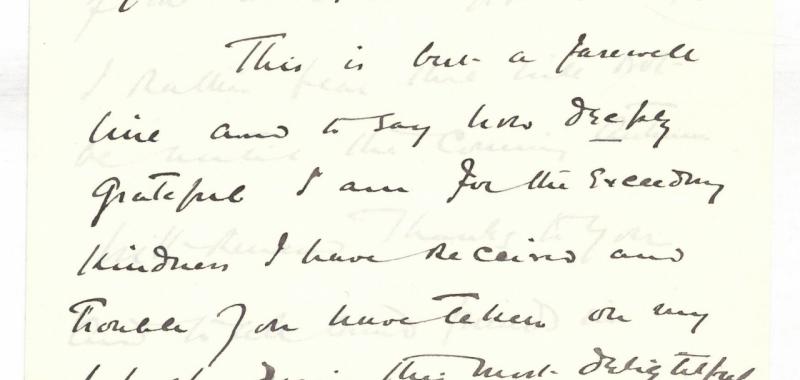 This is but a farewell
line and to say how deeply
grateful I am for the exceeding
kindness I have received and
trouble you have taken on my
this most delightful